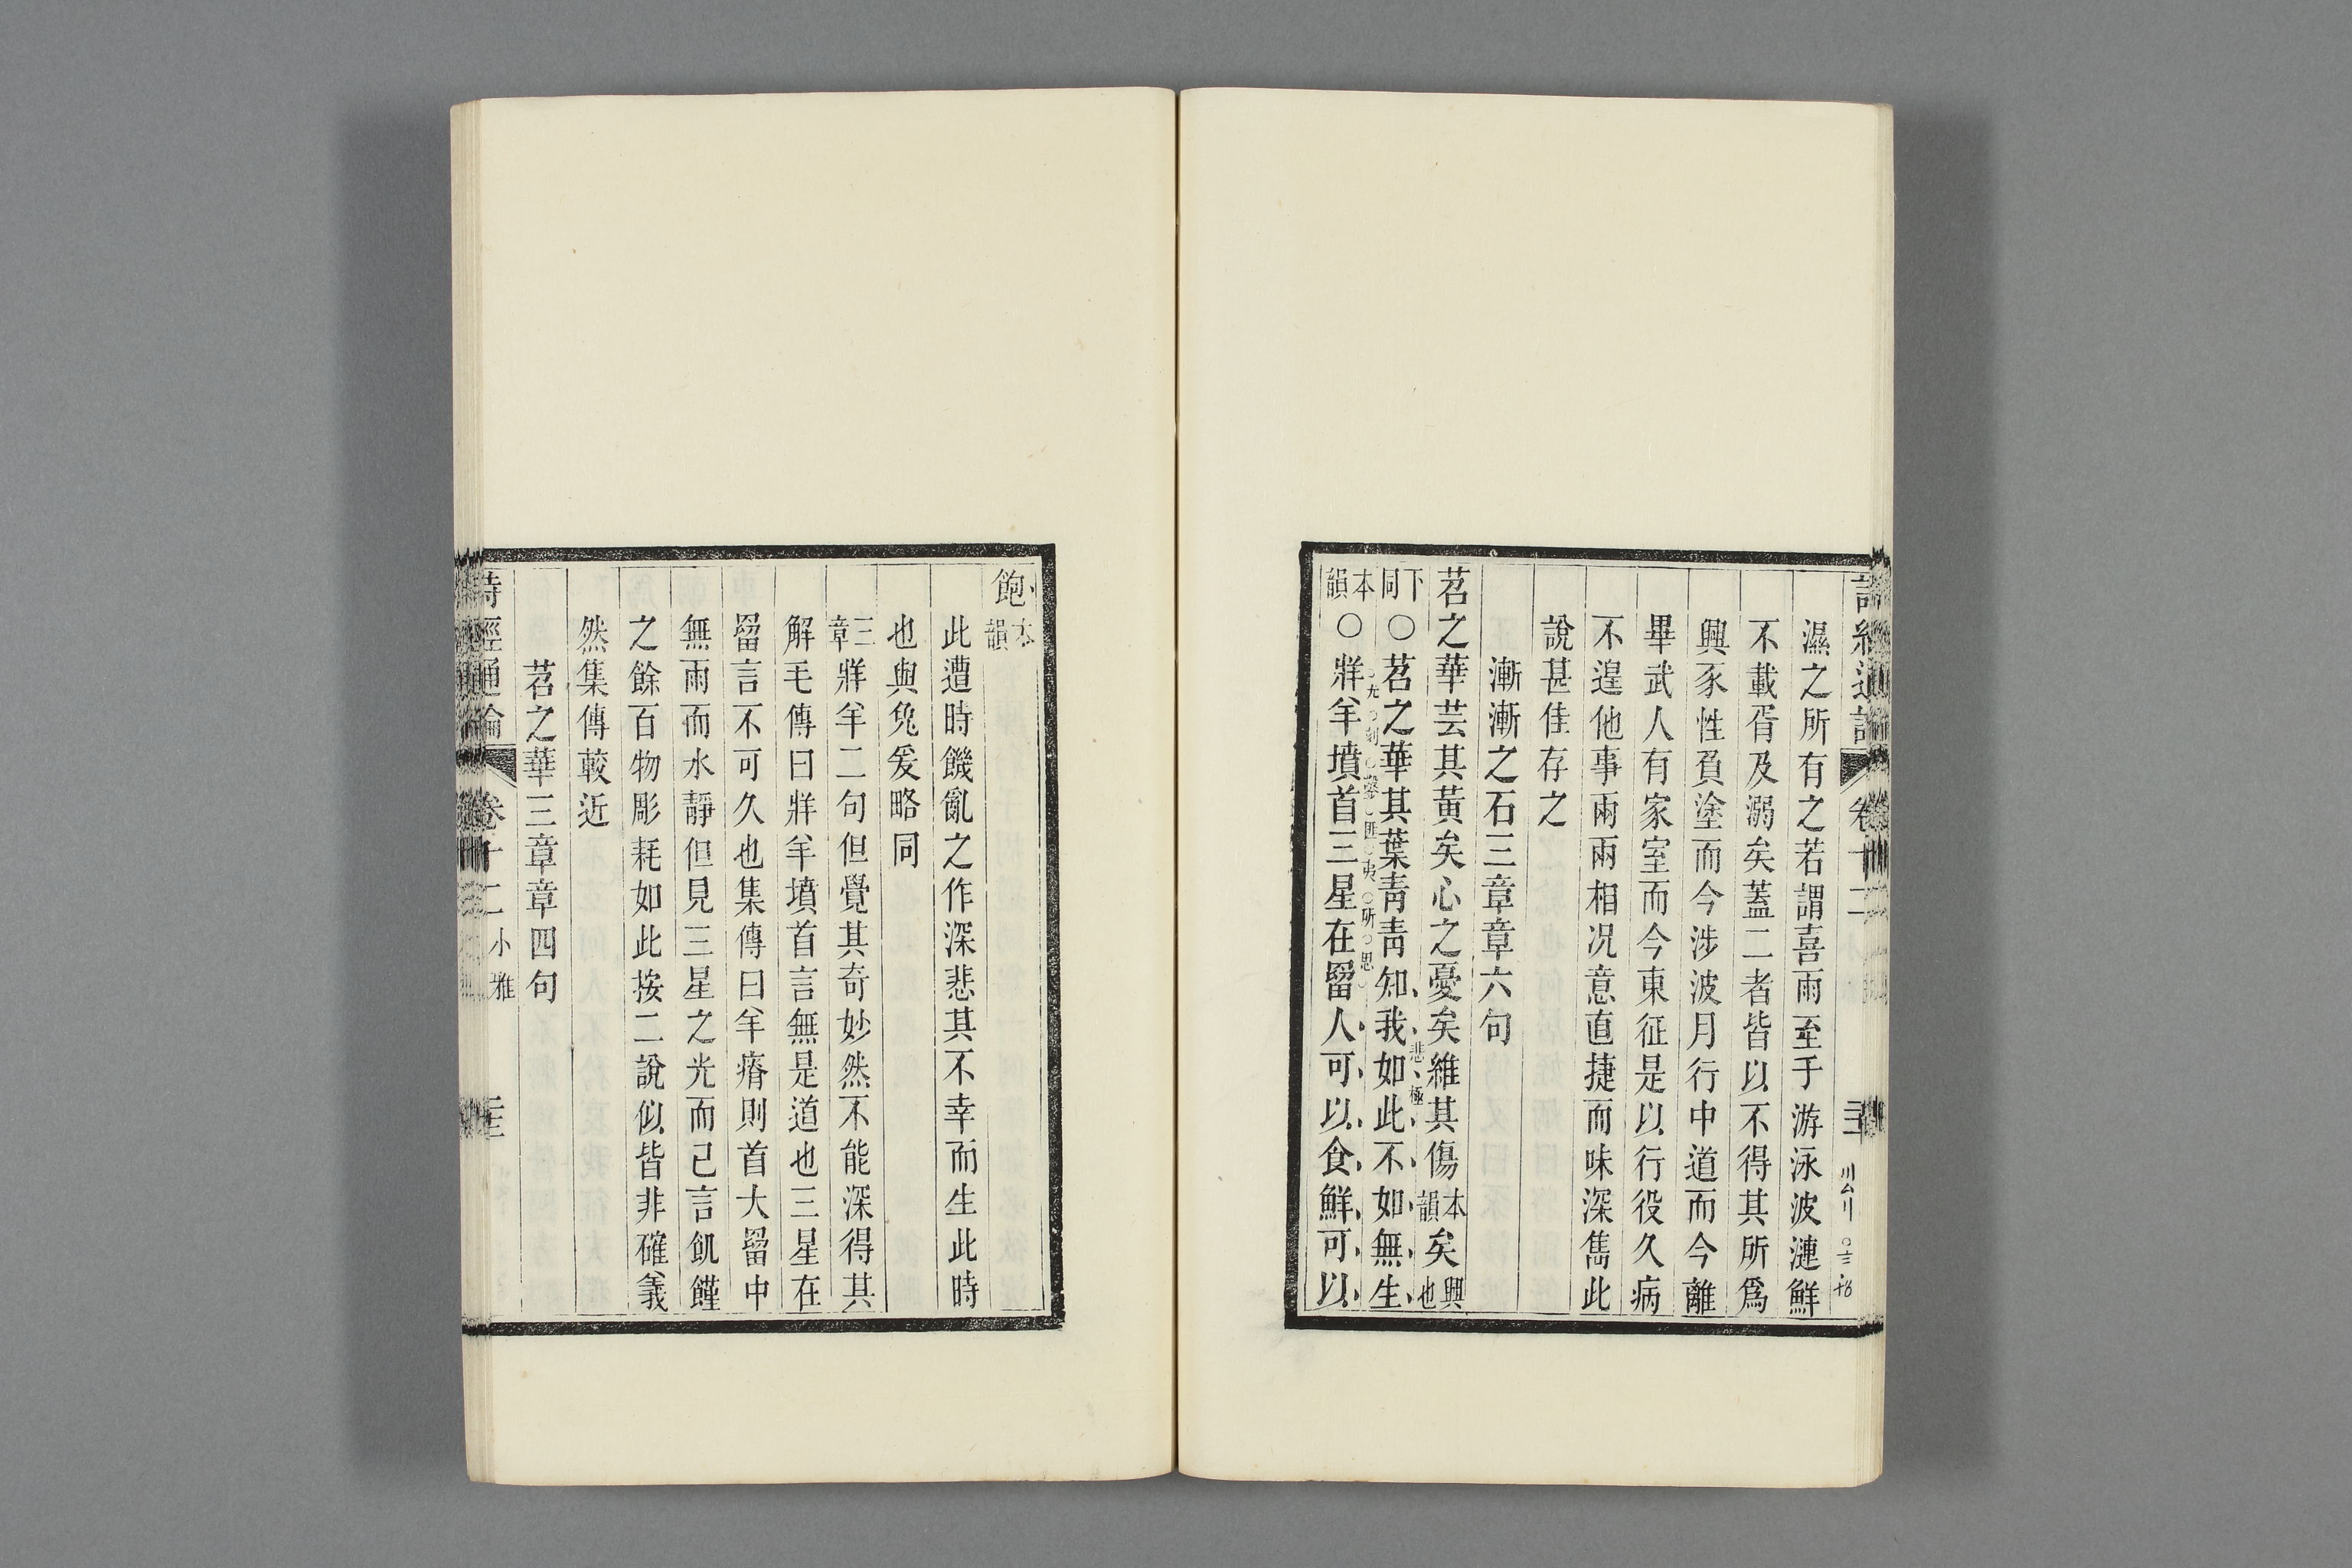 詩經通論 卷十二
濕之所有之若謂喜雨至乎游泳波漣鮮
不載胥及溺矣蓋二者皆以不得其所爲
興豕性負塗而今涉波月行中道而今離
畢武人有家室而今東征是以行役久病
不遑他事兩兩相况意直捷而味深雋此
說甚佳存之
漸漸之石三章章六句
苕之華芸其黃矣心之憂矣維其傷本韻矣興也
悲極
下同○苕之華其葉青青知我如此不如無生
本韻○牂羊墳首三星在罶人可以食鮮可以
飽本韻
此遭時饑亂之作深悲其不幸而生此時
也與兔爰略同
三章牂羊二句但覺其奇妙然不能深得其
解毛傳曰牂羊墳首言無是道也三星在
罶言不可久也集傳曰羊瘠則首大罶中
無雨而水靜但見三星之光而已言飢饉
之餘百物彫耗如此按二說似皆非確義
然集傳較近
苕之華三章章四句
詩經通論 卷十二 小雅